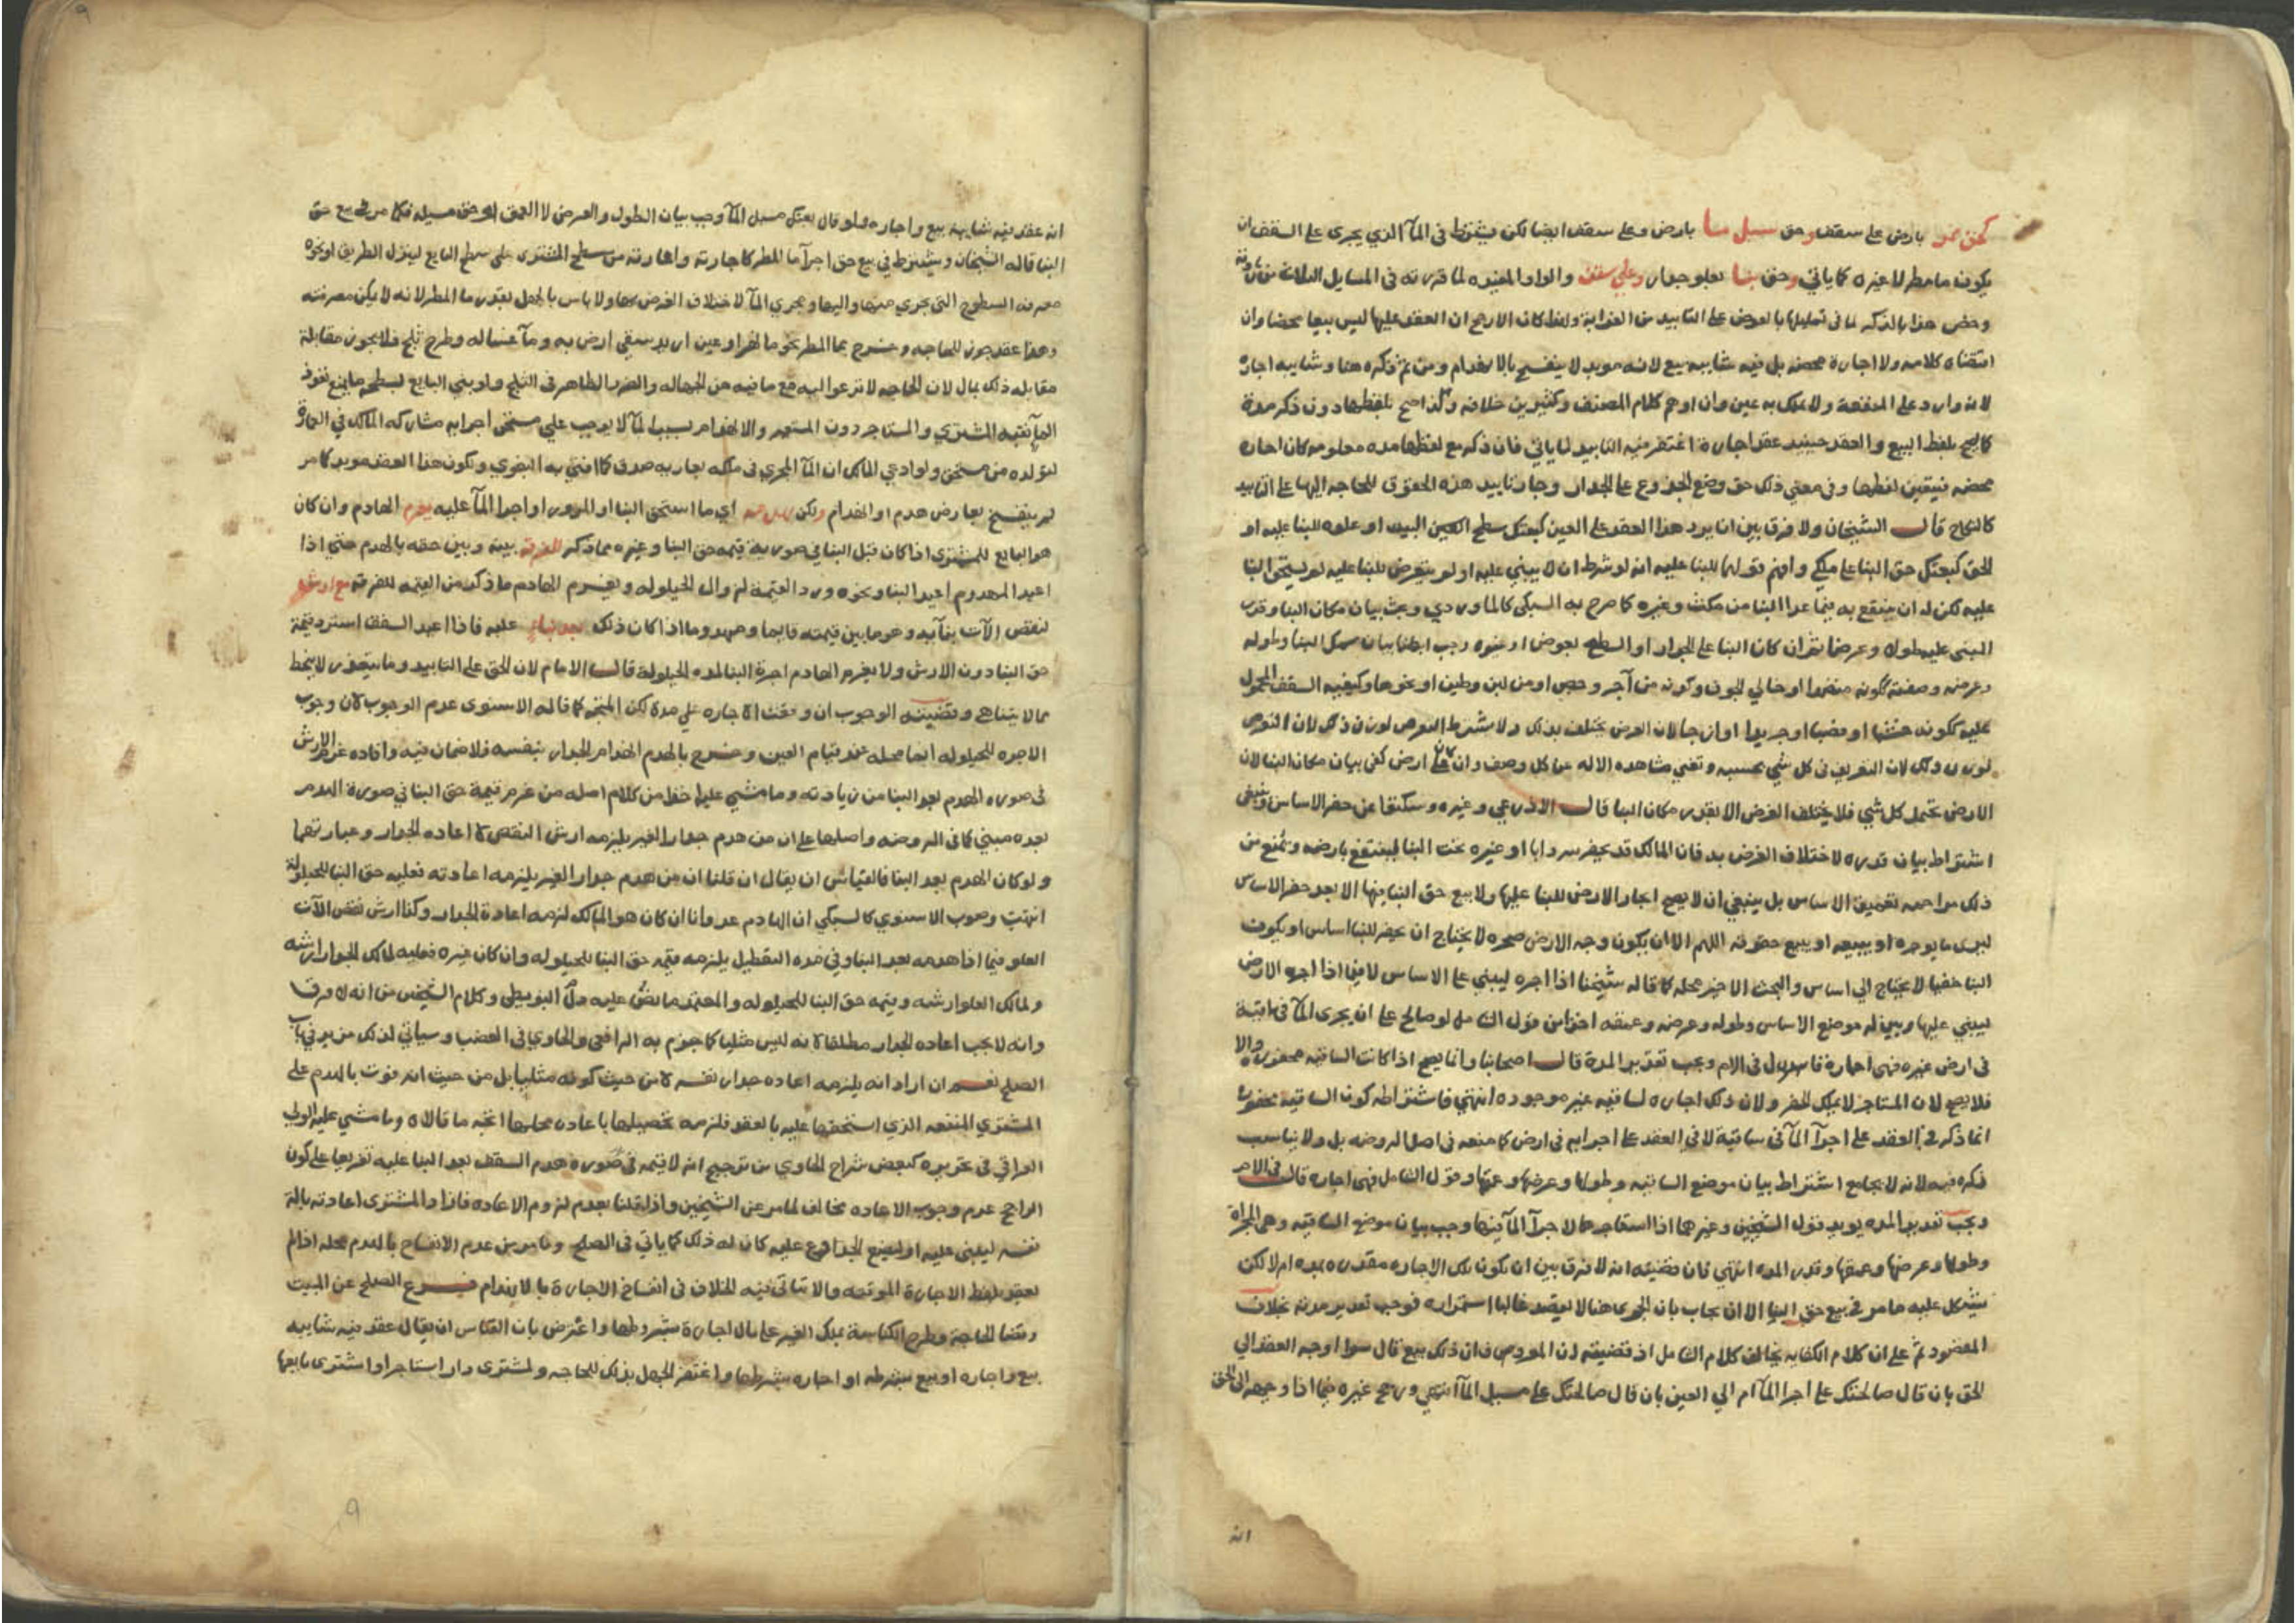 كحق ممر بارض على سقف وحق مسيل ما بارض وعلى سقف ايضا لكن يشترط في المآ الذي يجرى على السقف ان
يكون ما مطر لا غيره كما ياتي وحق بنا بعلو جدار وعلى سقف والواو المفيده لما قررته في المسايل الثلاثة من زيادته
وخص هذا بالذكر لما في تمليكها بالعوض على التابيد من الغرابة ولما كان الارجح ان العقد عليها ليس بيعا محضا وان
اقتضاه كلامه ولا اجارة محضه بل فيه شايبه بيع لانه موبد لا ينفسخ بالانهدام ومن ثم ذكره هنا وشايبه اجاره
لانه وارد على المنفعة ولا يملك به عين وان اوهم كلام المصنف وكثيرين خلافه ولذا صح بلفظها دون ذكر مدة
كما يصح بلفظ البيع والعقد حينيذ عقد اجارة اغتفر فيه التابيد لما ياتي فان ذكر مع لفظها مده معلومه كان اجاره
محضه فيتعين لفظها وفي معنى ذلك حق وضع الجذوع على الجدار وجاز تابيد هذه الحقوق للحاجه اليها على التابيد
كالنكاح قال الشيخان ولا فرق بين ان يرد هذا العقد على العين كبعتك سطح العين البيت او علوه للبنا عليه او
الحق كبعتك حق البنا على ملكي وافهم قولهما للبنا عليه انه لو شرط ان لا يبني عليه او لم يتعرض للبنا عليه لم يستحق البنا
عليه لكن له ان ينتفع به بما عدا البنا من مكث وغيره كما صرح به السبكي كالماوردي ويجب بيان مكان البنا وقدر
المبنى عليه طولا وعرضا ثم ان كان البنا على الجدار او السطح بعوض او غيره وجب ايضا بيان سمك البنا وطوله
وعرضه وصفته ككونه منضدا او خالي الجوف وكونه من آجر وجص او من لبن وطين او نحوها وكيفيه السقف المحمول
عليه ككونه خشبا او قصبا او جريدا او ازجا لان الغرض يختلف بذلك ولا يشترط التعرض لوزن ذلك لان التعرض
لوزن ذلك لان التعريف في كل شي بحسبه وتغني مشاهده الاله عن كل وصف وان كان على ارض كفى بيان مكان البنا لان
الارض تحتمل كل شي فلا يختلف الغرض الا بقدر مكان البنا قال الاذرعي وغيره وسكتوا عن حفر الاساس وينبغي
اشتراط بيان قدره لاختلاف الغرض به فان المالك قد يحفر سردابا او غيره تحت البنا لينتفع بارضه ويمنع من
ذلك مزاحمه تعميق الاساس بل ينبغي ان لا يصح ايجار الارض للبنا عليها ولا بيع حق البنا فيها الا بعد حفر الاساس
ليرى ما يوجره او يبيعه او يبيع حقوقه اللهم الا ان يكون وجه الارض صخره لا يحتاج ان يحفر للبنا اساس او يكون
البنا خفيفا لا يحتاج الى اساس والبحث الاخير محله كما قاله شيخنا اذا اجره ليبني على الاساس لا فيما اذا اجره الارض
ليبني عليها وبين له موضع الاساس وطوله وعرضه وعمقه اخذا من قول الشامل لو صالح على ان يجرى المآ في ساقية
في ارض غيره فهي اجارة قال في الام ويجب تقدير المدة قال اصحابنا وانما يصح اذا كانت الساقيه محفوره والا
فلا يصح لان المستاجر لا يملك الحفر ولان ذلك اجاره لساقيه غير موجوده انتهي فاشتراطه كون الساقيه محفورة
انما ذكر في العقد على اجرآ المآ في ساقية لا في العقد على اجرايه في ارض كما صنعه في اصل الروضه بل ولا يناسب
ذكره فيه لانه لا يجامع اشتراط بيان موضع الساقيه وطولها وعرضها وعمقها وقول الشامل فهي اجاره قال في الام
ويجب تقدير المده يويد قول الشيخين وغيرهما اذا استاجرها لاجرآ المآ فيها وجب بيان موضع الساقيه وهي المجراه
وطولها وعرضها وعمقها وقدر المده انتهي فان قضيته انه لا فرق بين ان يكون تلك الاجاره مقدره بمده ام لا لكن
يشكل عليه ما مر في بيع حق البنا الا ان يجاب بان المجرى هنا لا يقصد غالبا استمراره فوجب تقدير مدته بخلاف
المقصود ثم على ان كلام الكفايه يخالف كلام الشامل اذ قضيته ان ذلك بيع قال سوا اوجه العقد الى
الحق بان قال صالحتك على اجرا المآ ام الى العين بان قال صالحتك على مسيل المآ انتهي ورجح غيره فيما اذا وجهه الى الحق
انه
انه عقد فيه شايبة بيع واجاره ولو قال بعتك مسيل المآ وجب بيان الطول والعرض لا العمق او حق مسيله فكما مر في بيع حق
البنا قاله الشيخان ويشترط في بيع حق اجرآ ما المطر كاجارته واعارته من سطح المشترى على سطح البايع لينزل الطريق او نحوه
معرفه السطوح التى يجري منها واليها ومجري المآ لاختلاف الغرض بها ولا باس بالجهل بقدر ما المطر لانه لا يمكن معرفته
وهذا عقد جوز للحاجه وخرج بما المطر نحو ما نهر او عين اريد سقي ارض به وما غساله وطرح ثلج فلا يجوز مقابلة
مقابله ذلك بمال لان الحاجه لا تدعو اليه مع ما فيه من الجهاله والضرر الظاهر في الثلج ولو بني البايع لسطحه ما يمنع نفوذ
المآ نقبه المشتري والمستاجر دون المستعير والانهدام بسبب المآ لا يوجب علي مستحق اجرايه مشاركه المالك في العمارة
لتولده من مستحق ولو ادعي المالك ان المآ المجري في ملكه بعاريه صدق كما افتى به البغوي ولكون هذا العقد موبد كما مر
لم ينفسخ بعارض هدم او انهدام ولكن اي ما استحق البنا او المرور او اجرا المآ عليه يغرم الهادم وان كان
هو البايع للمشترى اذا كان قبل البنا في صورته قيمه حق البنا وغيره مما ذكر للفرقة بينه وبين حقه بالهدم حتي اذا
اعيد المهدوم اعيد البنا ونحوه ورد القيمة لزوال الحيلوله ويغرم الهادم ما ذكر من القيمه للفرقه مع ارش
لنقص الآت بنآيه وهو ما بين قيمته قايما ومهدوما اذا كان ذلك بعد بناءٍ عليه فاذا اعيد السقف استرد قيمة
حق البنا دون الارش ولا يغرم الهادم اجرة البنا لمده الحيلولة قال الامام لان الحق على التابيد وما يتقدر لا ينحط
مما لا يتناهى وقضيته الوجوب ان وقعت الاجاره على مدة لكن المتجه كما قاله الاسنوى عدم الوجوب لان وجوب
الاجره للحيلوله انما محله عند قيام العين وخرج بالهدم انهدام الجدار بنفسه فلا ضمان فيه وافاده غرم الارش
في صوره الهدم بعد البنا من زيادته وما مشي عليه اخذا من كلام اصله من غرم قيمة حق البنا في صورة الهدم
بعده مبني كما في الروضه واصلها على ان من هدم جدار الغير يلزمه ارش النقص لا اعاده الجدار وعبارتهما
ولو كان الهدم بعد البنا فالقياس ان يقال ان قلنا ان من هدم جدار الغير يلزمه اعادته فعليه حق البنا للحيلولة
انتهت وصوب الاسنوي كالسبكي ان الهادم عدوانا ان كان هو المالك لزمه اعادة الجدار وكذا ارش نقص الآت
العلو فيما اذا هدمه بعد البنا وفي مده التعطيل يلزمه قيمه حق البنا للحيلوله وان كان غيره فعليه لمالك الجدار ارشه
ولمالك العلو ارشه وقيمه حق البنا للحيلوله والمعتمد ما نص عليه في البويطى وكلام الشيخين من انه لا فرق
وانه لا يجب اعاده الجدار مطلقا لانه ليس مثليا كما جزم به الرافعي والحاوي في الغصب وسياتي لذلك مزيد في باب
الصلح نعم ان اراد انه يلزمه اعاده جدار نفسه لا من حيث كونه مثليا بل من حيث انه فوت بالهدم على
المشتري المنفعه الذي استحقها عليه بالعقد فلزمه تحصيلها باعاده محلها اتجه ما قالاه وما مشي عليه الولي
العراقي في تحريره كبعض شراح الحاوي من ترجيح انه لا قيمه في صوره هدم السقف بعد البنا عليه تفريعا على كون
الراجح عدم وجوب الاعاده مخالف لما مر عن الشيخين واذا قلنا بعدم لزوم الاعاده فاراد المشترى اعادته بالة
نفسه ليبنى عليه او ليضع الجذوع عليه كان له ذلك كما ياتي في الصلح وما مر من عدم الانفساخ بالهدم محله اذا لم
يعقد بلفظ الاجارة الموقته والا تاتى فيه الخلاف في انفساخ الاجارة بالانهدام فرع الصلح عن المبيت
وقضا الحاجة وطرح الكناسة بملك الغير على مال اجارة بشروطها واعترض بان القياس ان يقال عقد فيه شايبه
بيع واجاره او بيع بشرطه او اجاره بشرطها واغتفر الجهل بذلك للحاجه ولمشترى دار استاجر او اشترى بايعها